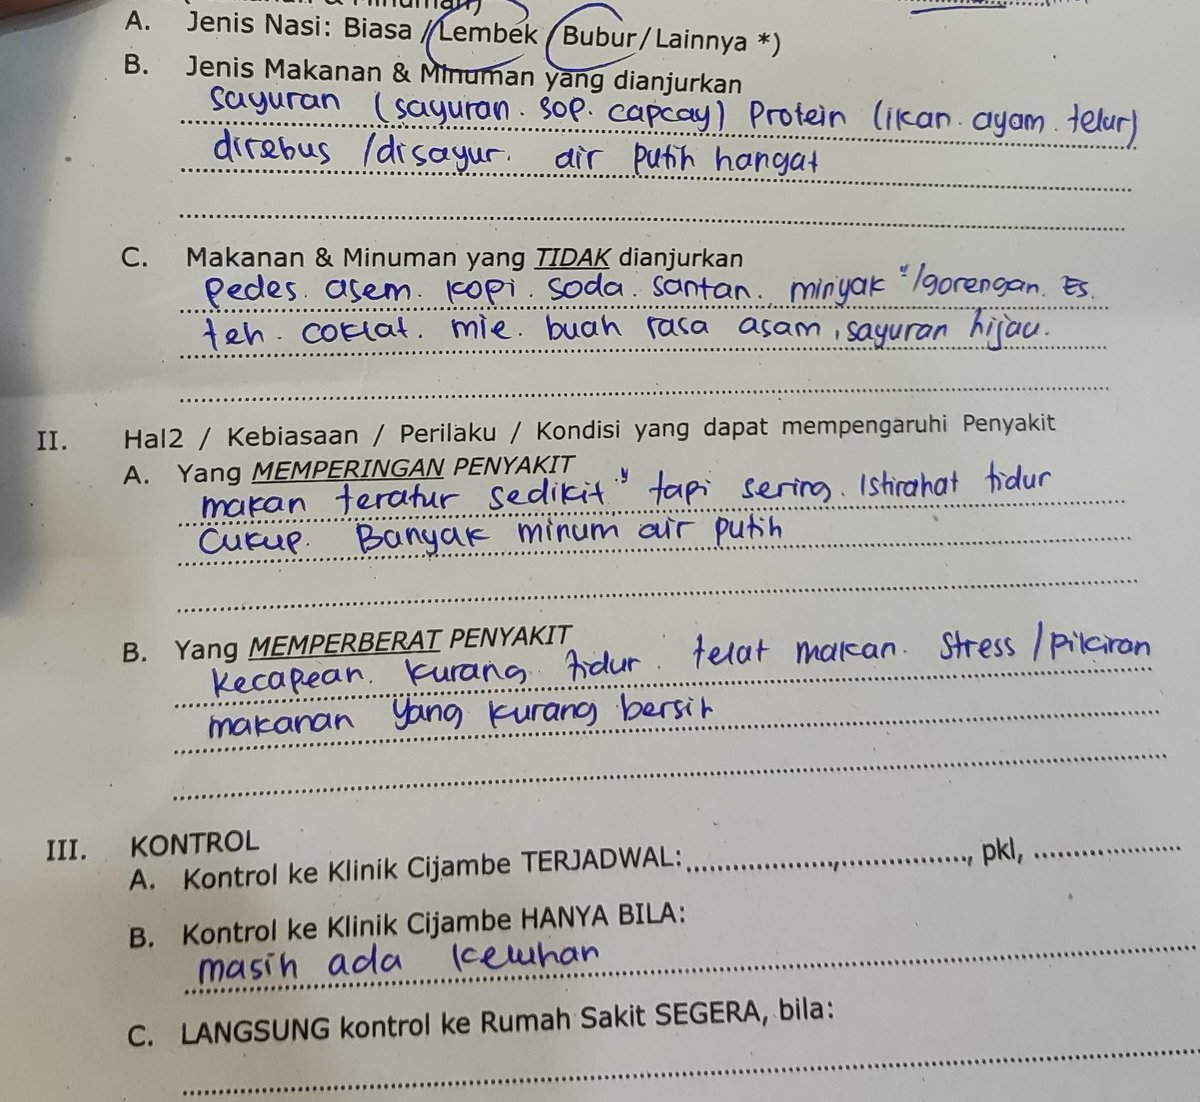 A. Jenis Nasi: Biasa / Lembek / Bubur / Lainnya *)
B. Jenis Makanan & Minuman yang dianjurkan
sayuran (sayuran. sop. capcay) Protein (ikan. ayam. telur)
direbus /disayur. air putih hangat
C. Makanan & Minuman yang TIDAK dianjurkan
pedes. asem. kopi. soda. santan. minyak "/gorengan. Es.
teh. coklat. mie. buah rasa asam, sayuran hijau.
II. Hal2 / Kebiasaan / Perilaku / Kondisi yang dapat mempengaruhi Penyakit
A. Yang MEMPERINGAN PENYAKIT
makan teratur sedikit" tapi sering. Istirahat tidur
Cukup. Banyak minum air putih
B. Yang MEMPERBERAT PENYAKIT
kecapean. kurang tidur. telat makan. Stress / pikiran
makanan yang kurang bersih
III. KONTROL
A. Kontrol ke Klinik Cijambe TERJADWAL: ..................,................., pkl, ...................
B. Kontrol ke Klinik Cijambe HANYA BILA:
masih ada keluhan
C. LANGSUNG kontrol ke Rumah Sakit SEGERA, bila: